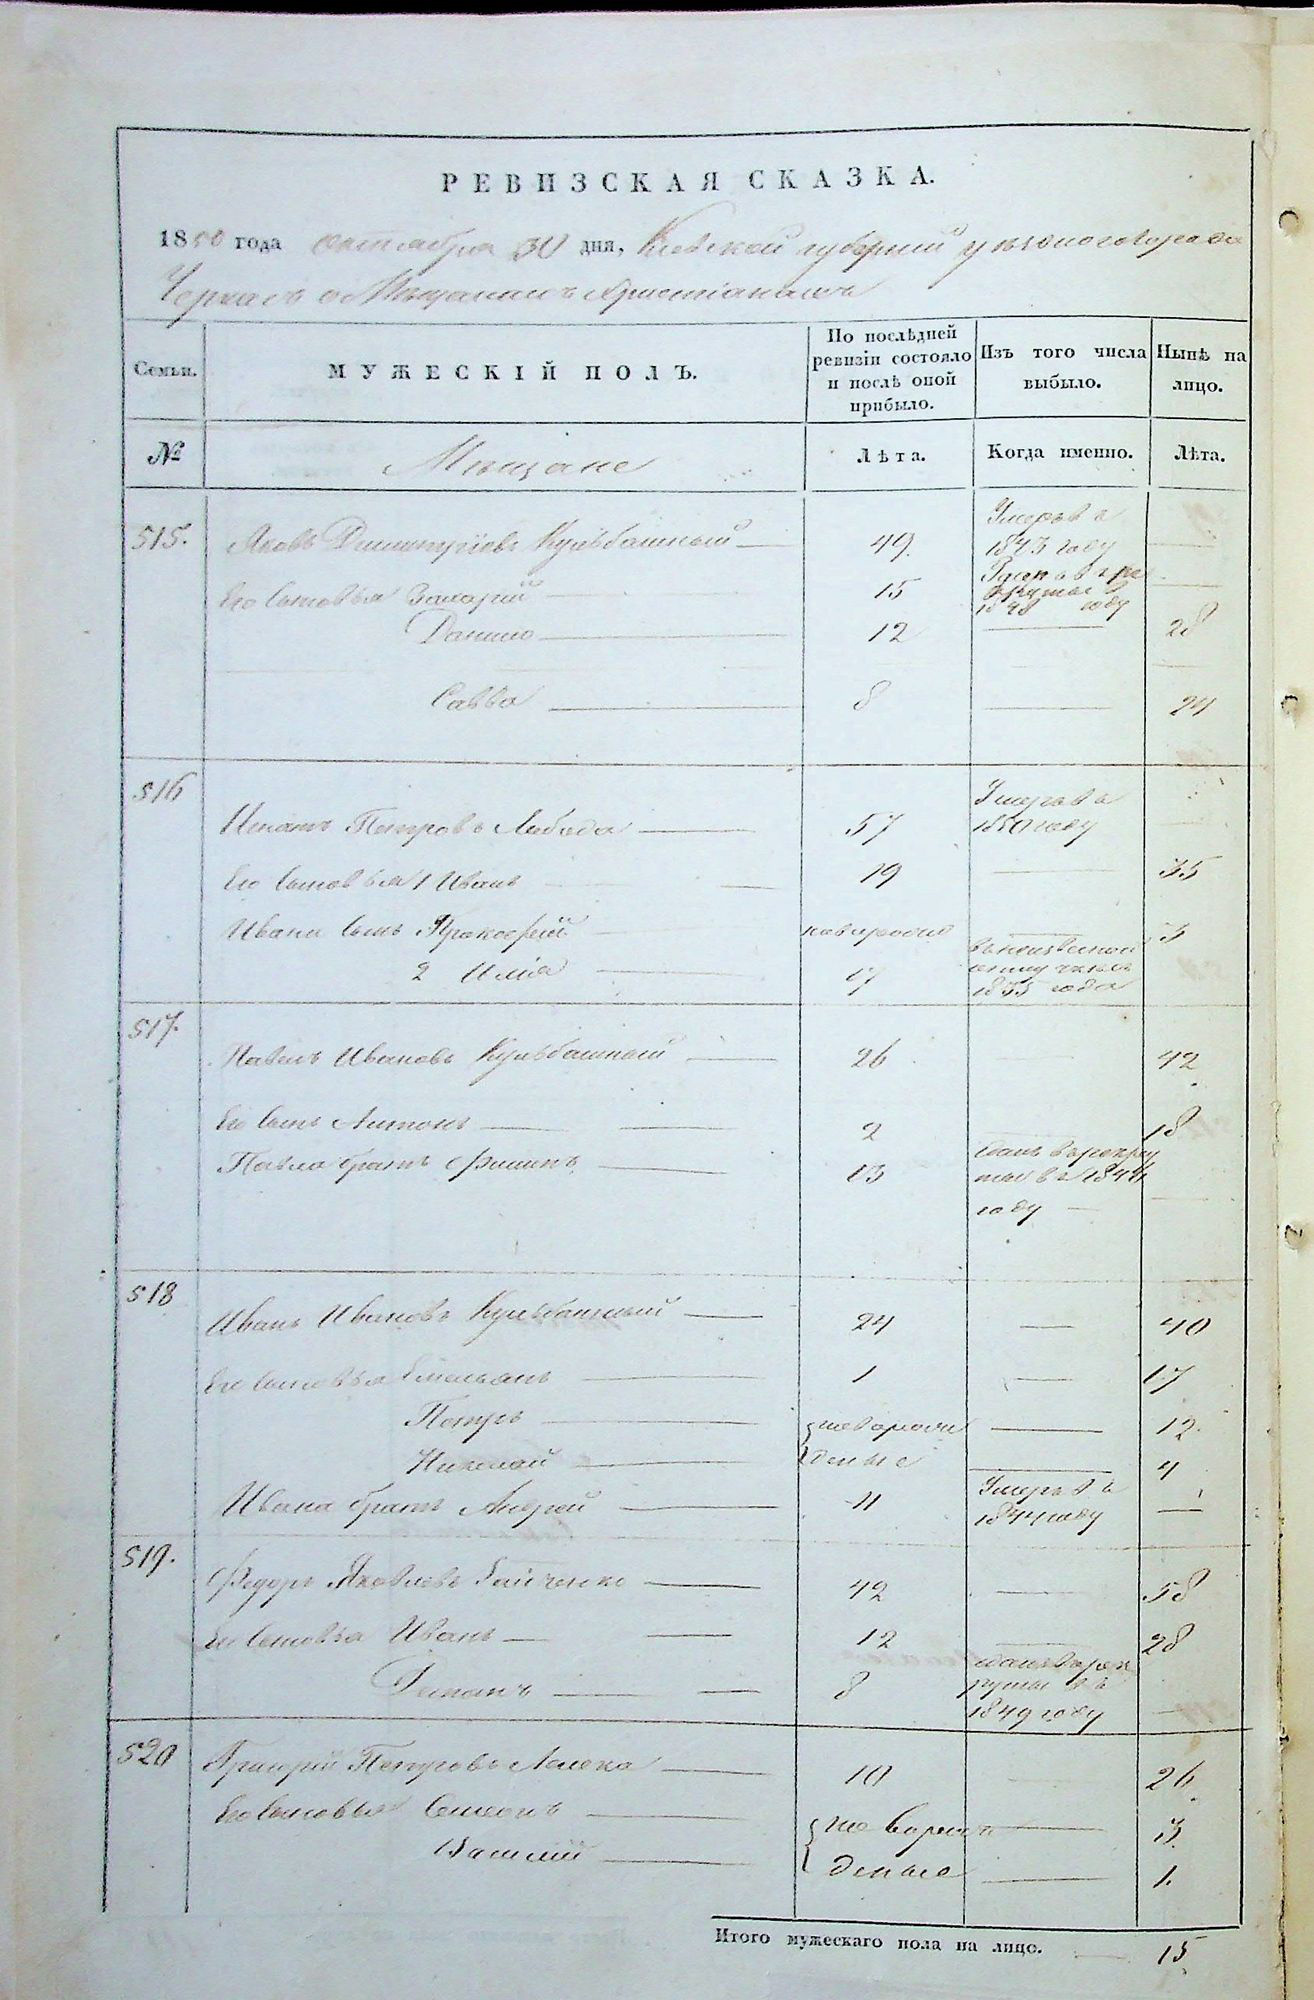 РЕВИЗСКАЯ СКАЗКА.
1850 года сентября 30 дня, Кіевской губерніи уѣзднаго города
Черкасъ о Мѣщанахъ христіанахъ
Семьи. МУЖЕСКІЙ ПОЛЪ. По послѣдней ревизіи состояло и послѣ оной прибыло. Изъ того числа выбыло. Нынѣ на лицо.
№ Мѣщане Лѣта. Когда именно. Лѣта.
515. Яковъ Димитріевъ Кулѣбашный 49 Умеръ въ 1843 году
Его сыновья Захарій 15 въ рекруты въ 1848 году
Данило 12 28
Савва 8 24
516 Игнатъ Петровъ Лебеда 57 Умеръ въ 1850 году
Его сыновья 1 Иванъ 19 35
Ивана сынъ Прокофій новорожд 3
2 Илія 17 въ неизвестной 1835 года
517. Павелъ Ивановъ Кулѣбашный 26 42
Его сынъ Антонъ 2 18
Павла братъ Филипъ 13 сданъ въ рекруты въ 1844 году
518 Иванъ Ивановъ Кулѣбашный 24 40
Его сыновья Емельянъ 1 17
Петръ новорож 12
Николай денные 4
Ивана братъ Андрей 11 Умеръ въ 1844 году
519. Федоръ Яковлевъ Гайченко 42 58
Его сыновья Иванъ 12 28
Романъ 8 сданъ въ рекруты въ 1849 году
520 Григорій Петровъ Лелека 10 26
Его сыновья Семенъ новорож 3
Василій денные 1.
Итого мужескаго пола на лицо. 15